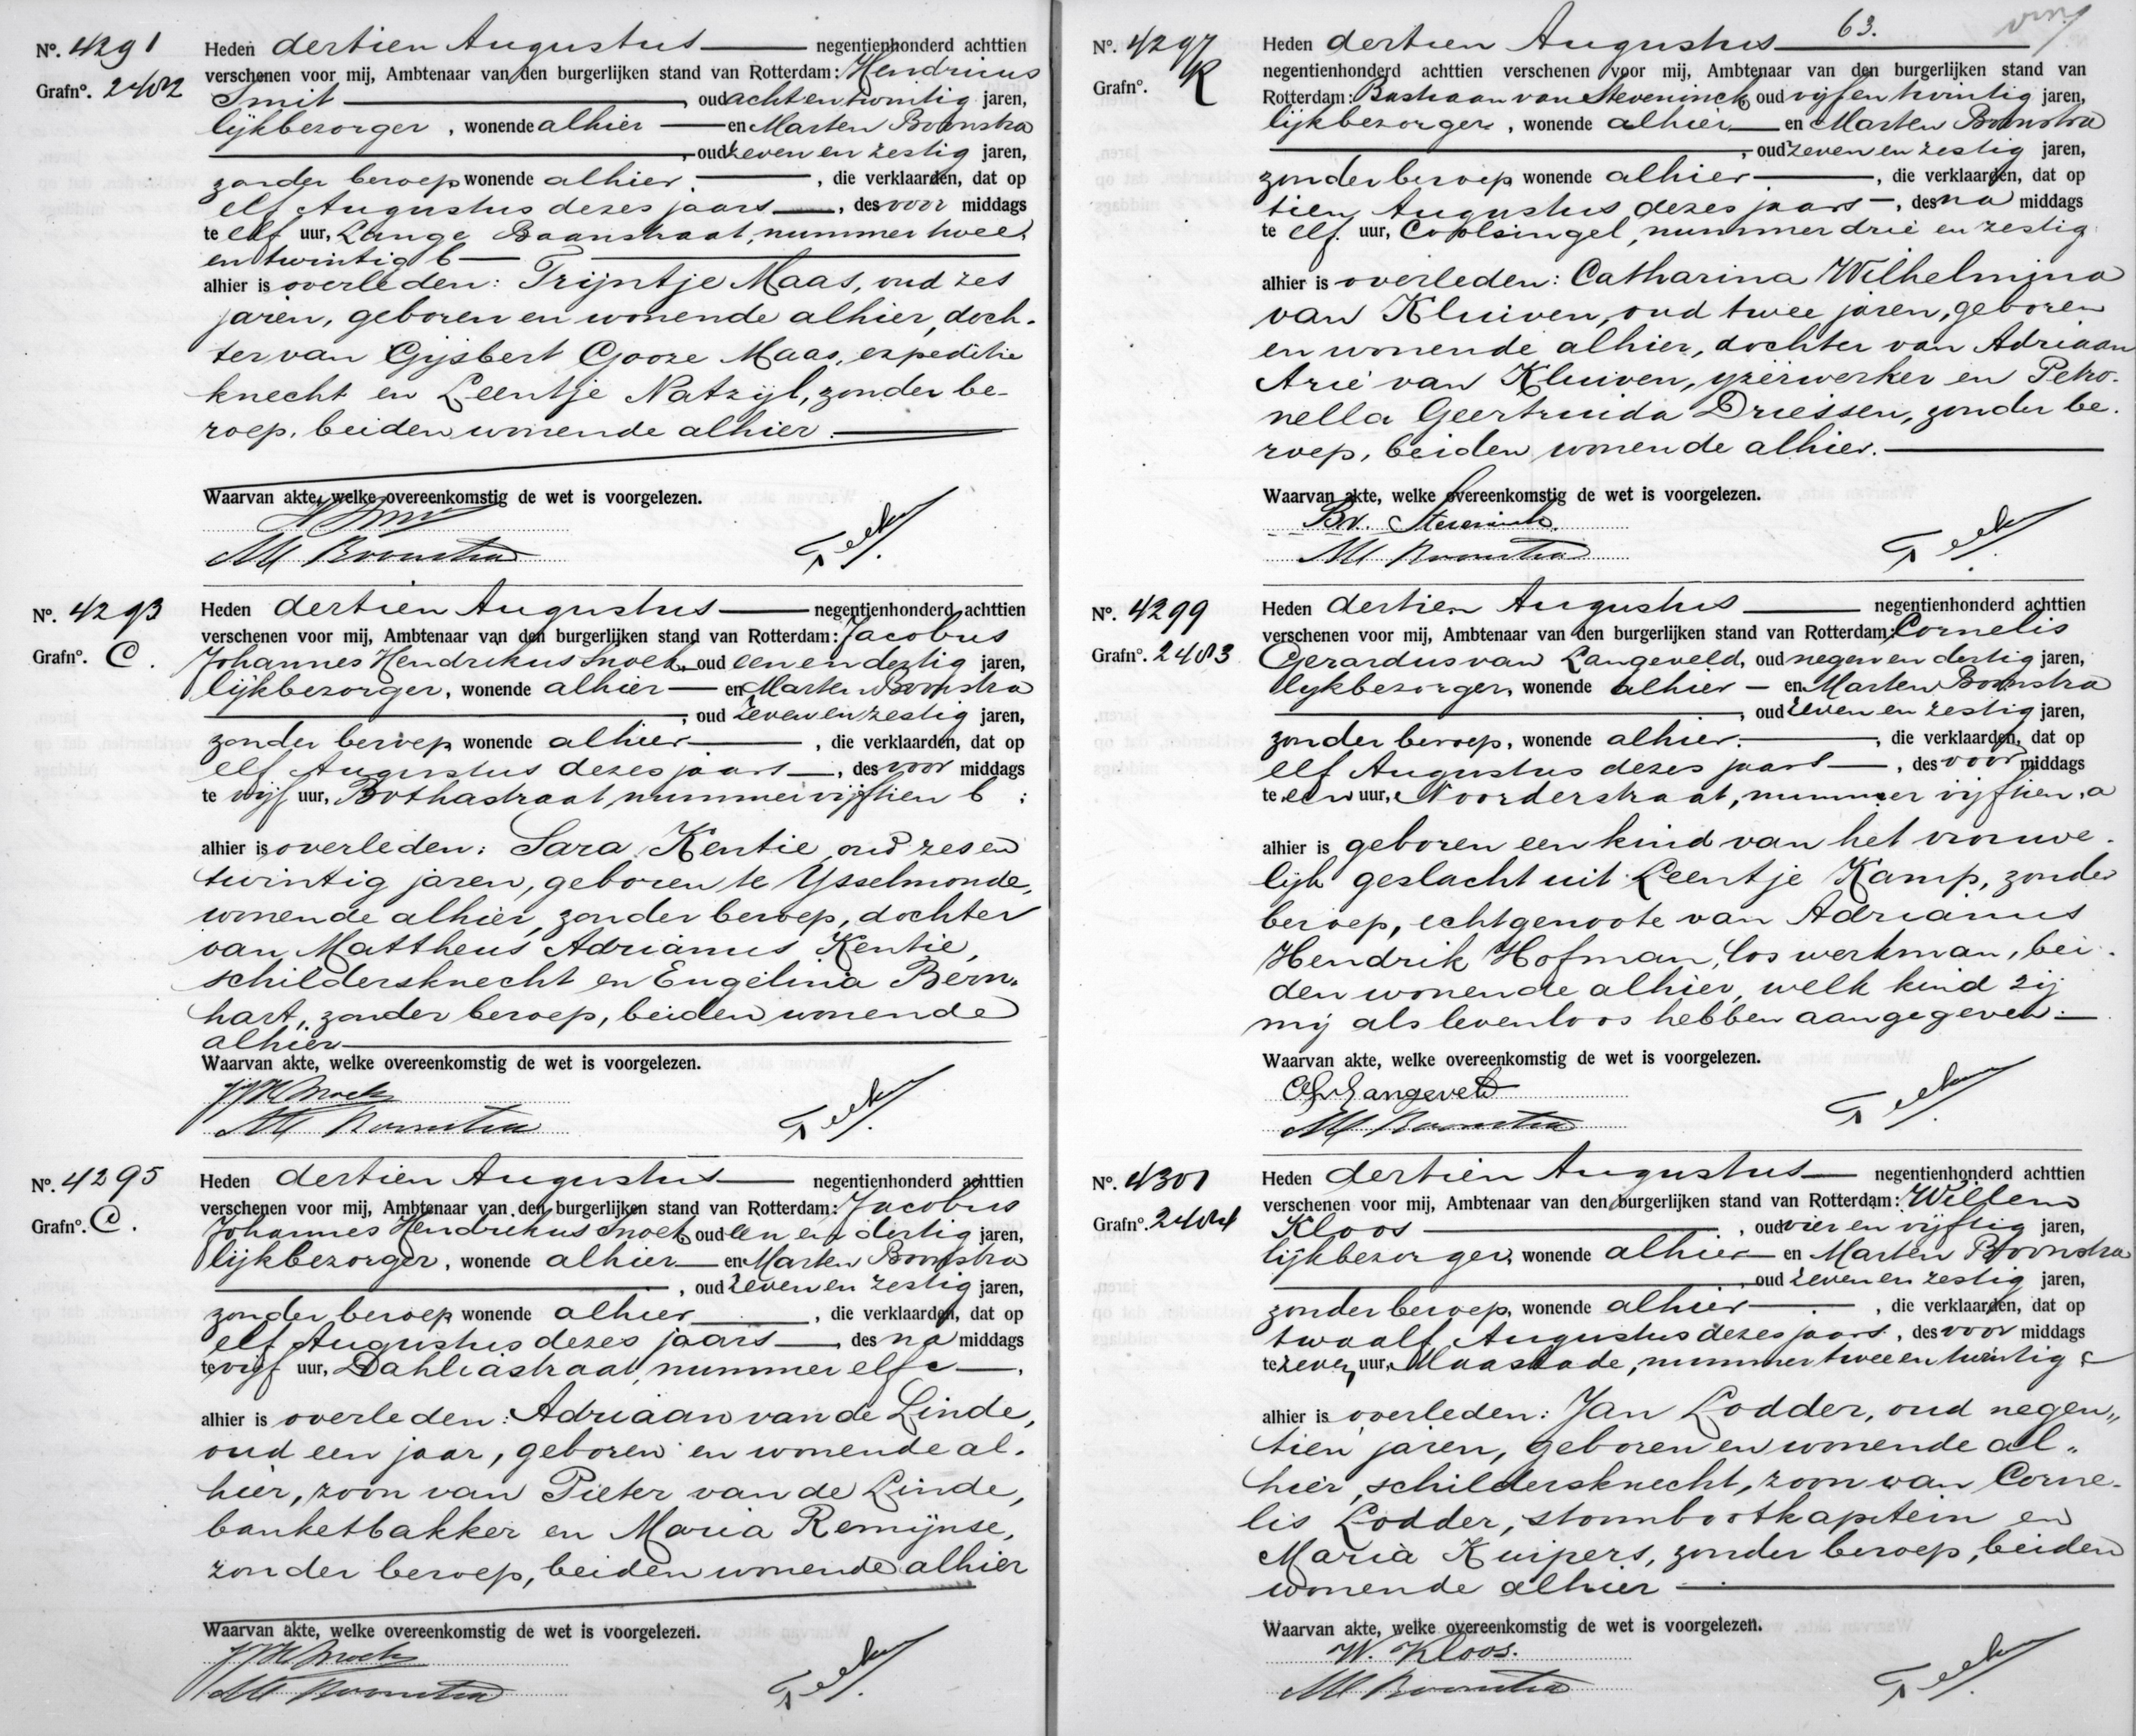 No. 4291 Heden dertien Augustus negentienhonderd achttien
Grafno. 2402 verschenen voor mij, Ambtenaar van den burgerlijken stand van Rotterdam: Hendricus
Smit, oud achtentwintig jaren,
lijkbezorger, wonende alhier en Marten Boonstra
, oud zeven en zestig jaren,
zonder beroep wonende alhier, die verklaarden, dat op
elf Augustus dezes jaars, des voor middags
te elf uur, Lange Baanstraat, nummer twee
entwintig b
alhier is overleden: Trijntje Maas, oud zes
jaren, geboren en wonende alhier, doch-
ter van Gijsbert Gooze Maas, expeditie
knecht en Leentje Natzijl, zonder be-
roep, beiden wonende alhier.
Waarvan akte, welke overeenkomstig de wet is voorgelezen.
H Smit
M Boonstra
No. 4293 Heden dertien Augustus negentienhonderd achttien
verschenen voor mij, Ambtenaar van den burgerlijken stand van Rotterdam: Jacobus
Grafno. C. Johannes Hendrikus Snoek, oud een en dertig jaren,
lijkbezorger, wonende alhier en Marten Boonstra
, oud zeven en zestig jaren,
zonder beroep wonende alhier, die verklaarden, dat op
elf Augustus dezes jaars, des voor middags
te vijf uur, Bothastraat nummer vijftien b
alhier is overleden: Sara Kentie, oud zes en
twintig jaren, geboren te Ysselmonde,
wonende alhier, zonder beroep, dochter
van Mattheus Adrianus Kentie,
schildersknecht en Engelina Bern-
hart, zonder beroep, beiden wonende
alhier
Waarvan akte, welke overeenkomstig de wet is voorgelezen.
JJH Snoek
M Boonstra
No. 4295 Heden dertien Augustus negentienhonderd achttien
verschenen voor mij, Ambtenaar van den burgerlijken stand van Rotterdam: Jacobus
Grafno. C. Johannes Hendrikus Snoek, oud een en dertig jaren,
lijkbezorger, wonende alhier en Marten Boonstra
, oud zeven en zestig jaren,
zonder beroep wonende alhier, die verklaarden, dat op
elf Augustus dezes jaars, des na middags
te vijf uur, Dahliastraat, nummer elf c
alhier is overleden: Adriaan van de Linde,
oud een jaar, geboren en wonende al-
hier, zoon van Pieter van de Linde,
banketbakker en Maria Remijnse,
zonder beroep, beiden wonende alhier
Waarvan akte, welke overeenkomstig de wet is voorgelezen.
JJH Snoek
M Boonstra
63.
No. 4297 Heden dertien Augustus
Grafno. R negentienhonderd achttien verschenen voor mij, Ambtenaar van den burgerlijken stand van
Rotterdam: Bastiaan van Steveninck, oud vijf en twintig jaren,
lijkbezorger, wonende alhier en Marten Boonstra
, oud zeven en zestig jaren,
zonder beroep wonende alhier, die verklaarden, dat op
tien Augustus dezes jaars, des na middags
te elf uur, Coolsingel, nummer drie en zestig
alhier is overleden: Catharina Wilhelmina
van Kluiven, oud twee jaren, geboren
en wonende alhier, dochter van Adriaan
Arie van Kluiven, yzerwerker en Petro-
nella Geertruida Driessen, zonder be-
roep, beiden wonende alhier.
Waarvan akte, welke overeenkomstig de wet is voorgelezen.
Bv. Steveninck.
M Boonstra
No. 4299 Heden dertien Augustus negentienhonderd achttien
verschenen voor mij, Ambtenaar van den burgerlijken stand van Rotterdam: Cornelis
Grafno. 2403 Gerardus van Langeveld, oud negen en dertig jaren,
lijkbezorger, wonende alhier en Marten Boonstra
, oud zeven en zestig jaren,
zonder beroep, wonende alhier, die verklaarden, dat op
elf Augustus dezes jaars, des voor middags
te een uur, Noorderstraat, nummer vijftien a
alhier is geboren een kind van het vrouwe-
lijk geslacht uit Leentje Kamp, zonder
beroep, echtgenoote van Adrianus
Hendrik Hofman, los werkman, bei-
den wonende alhier, welk kind zij
mij als levenloos hebben aangegeven.
Waarvan akte, welke overeenkomstig de wet is voorgelezen.
CGvLangeveld
M Boonstra
No. 4301 Heden dertien Augustus negentienhonderd achttien
verschenen voor mij, Ambtenaar van den burgerlijken stand van Rotterdam: Willem
Grafno. 2404 Kloos, oud vier en vijftig jaren,
lijkbezorger, wonende alhier en Marten Boonstra
, oud zeven en zestig jaren,
zonder beroep, wonende alhier, die verklaarden, dat op
twaalf Augustus dezes jaars, des voor middags
te zeven uur, Maaskade, nummer twee en twintig c
alhier is overleden: Jan Lodder, oud negen„
tien jaren, geboren en wonende al„
hier, schildersknecht, zoon van Corne-
lis Lodder, stoombootkapitein en
Maria Kuipers, zonder beroep, beiden
wonende alhier
Waarvan akte, welke overeenkomstig de wet is voorgelezen.
W. Kloos.
M Boonstra